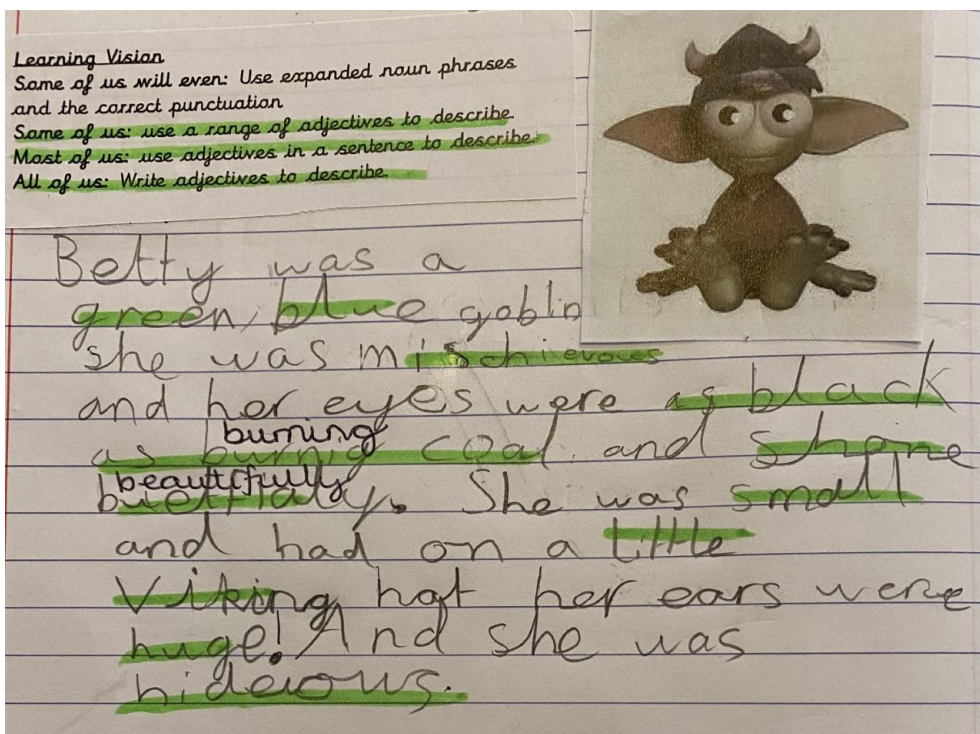 Learning Vision
Some of us will even: Use expanded noun phrases
and the correct punctuation
Some of us: use a range of adjectives to describe.
Most of us: use adjectives in a sentence to describe.
All of us: Write adjectives to describe.
Betty was a
green, blue goblin
she was mischievous
and her eyes were as black
burning
as burnig coal and shone
beautifully
. She was small
and had on a little
Viking hat her ears were
huge! And she was
hideious.